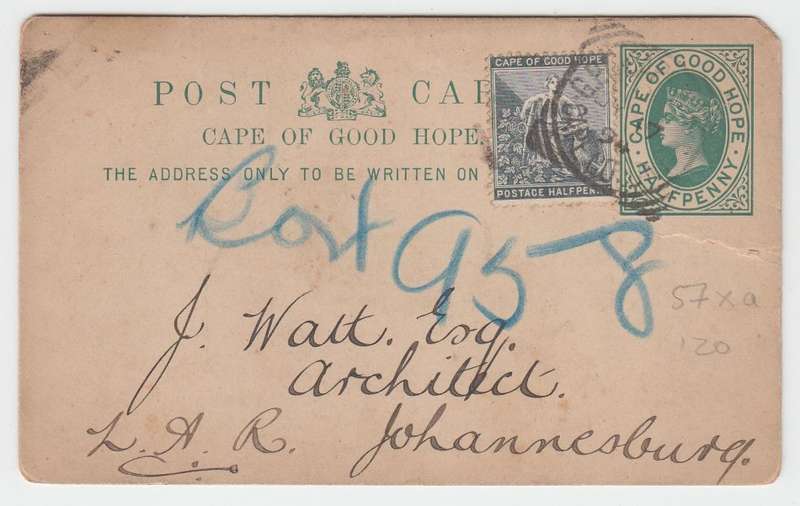 POST CAR
CAPE OF GOOD HOPE.
THE ADDRESS ONLY TO BE WRITTEN ON
CAPE OF GOOD HOPE
POSTAGE HALFPENN
CAPE OF GOOD HOPE
HALFPENNY
958
J. Watt. Esq.
Architect.
Z. A. R. Johannesburg.
57xa
120